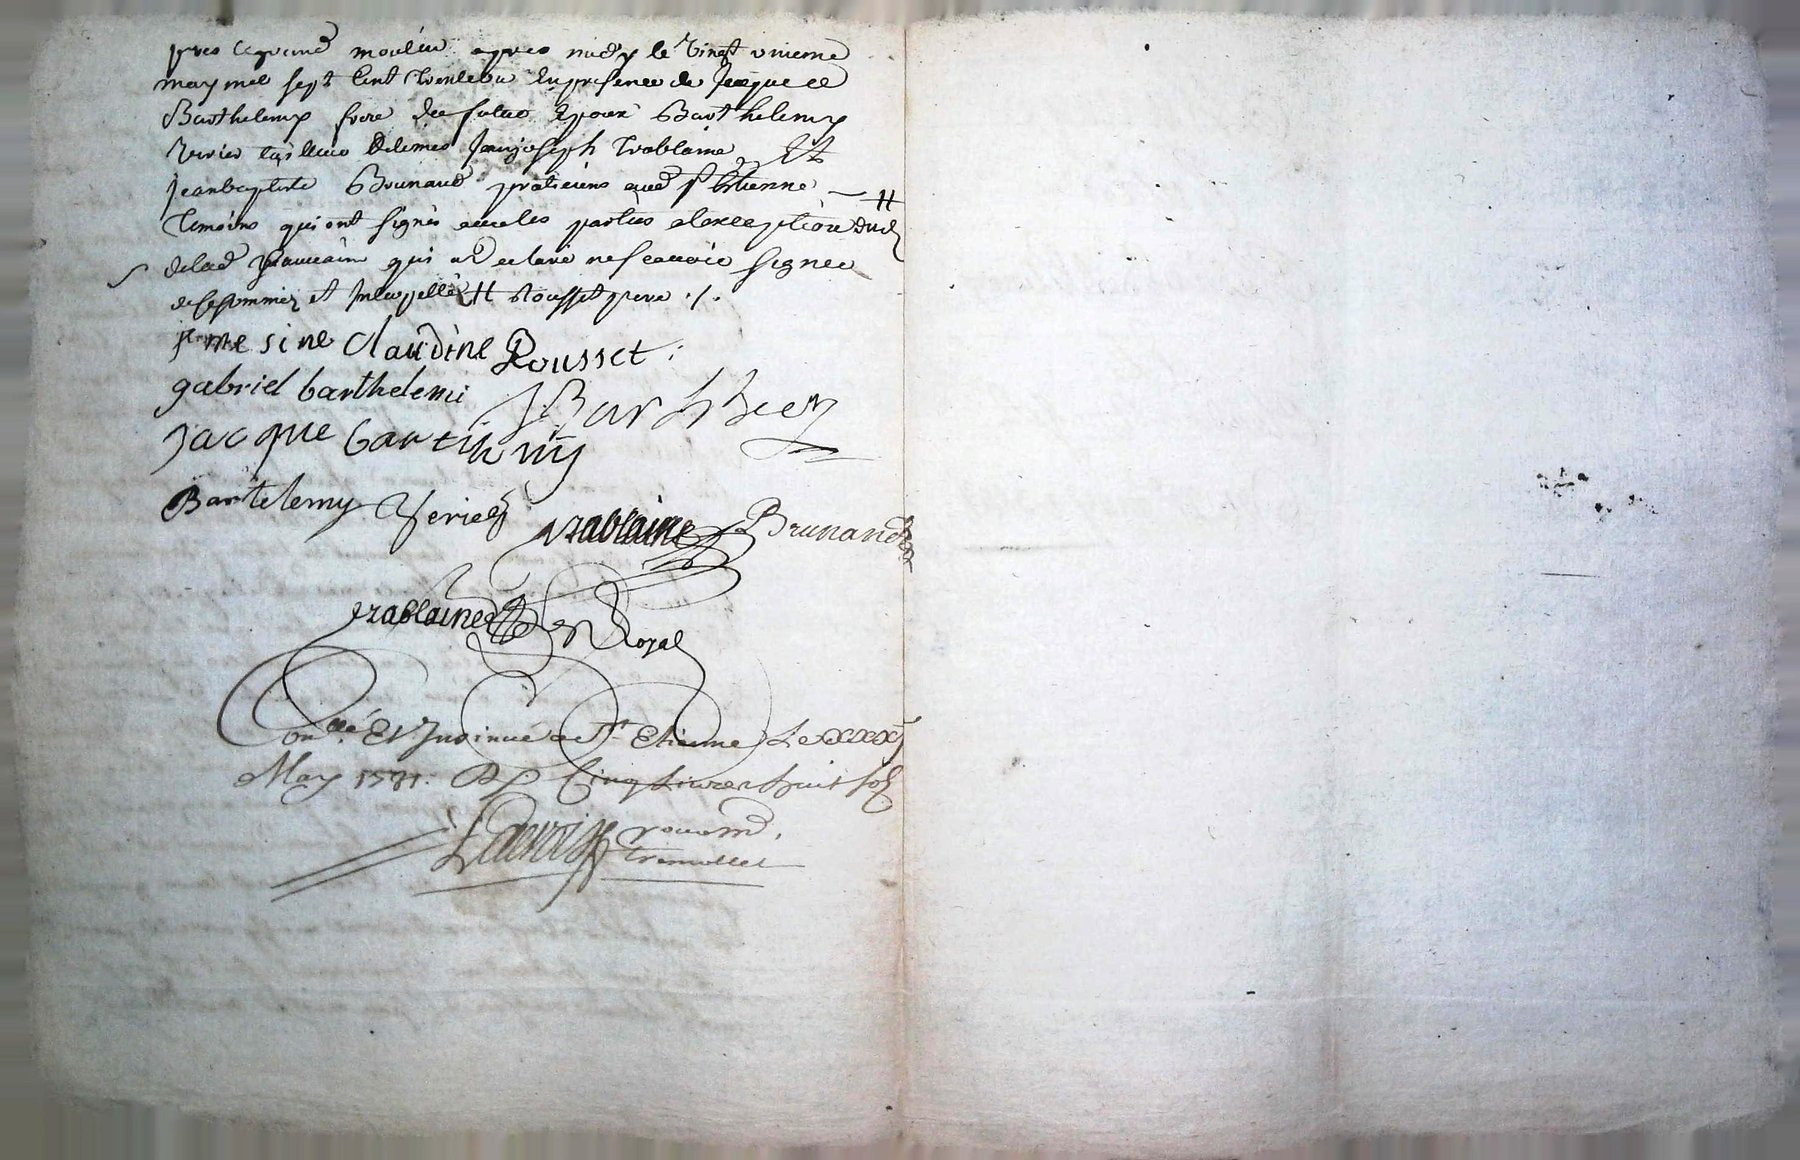 pres le grand moulin apres midy le vingt unieme
may mil sept cent trente un en presence de Jacque
Barthelemy frere du futur epoux Barthelemy
Verier tailleur de limes Jean joseph Trablaine Et
jeanbaptiste Brunand praticiens aud St Etienne
temoins qui ont signés avec les parties a lexception dud
de lad qui a declaré ne scavoir signer
de ce sommez et interpellés H Rousset pere ./.
sine Claudine Rousset
gabriel barthelemi
jacque
Bartelemy Verier Trablaine Brunand
Trablaine Royal
Conllé Et Insinué a St Etienne Le
May 1731: R Cinq Livres huit sols